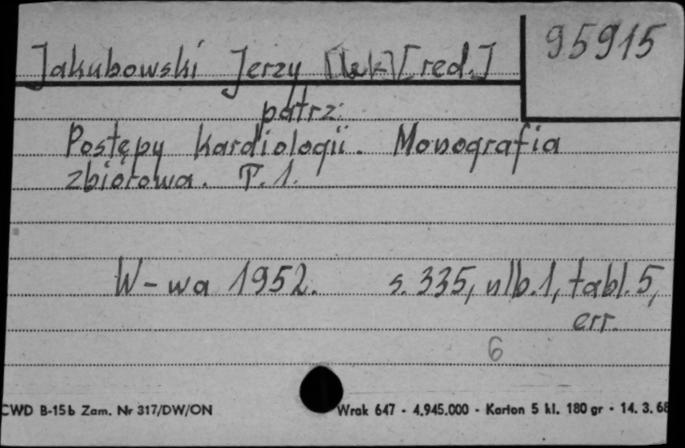 95915
Jakubowski Jerzy [lek] [red.]
patrz:
Postępy kardiologii. Monografia
zbiorowa. T. 1.
W-wa 1952. s. 335, nlb. 1, tabl. 5,
err.
6
CWD B-15b Zam. Nr 317/DW/ON Wrak 647 - 4.945.000 - Karton 5 kl. 180 gr - 14. 3. 68